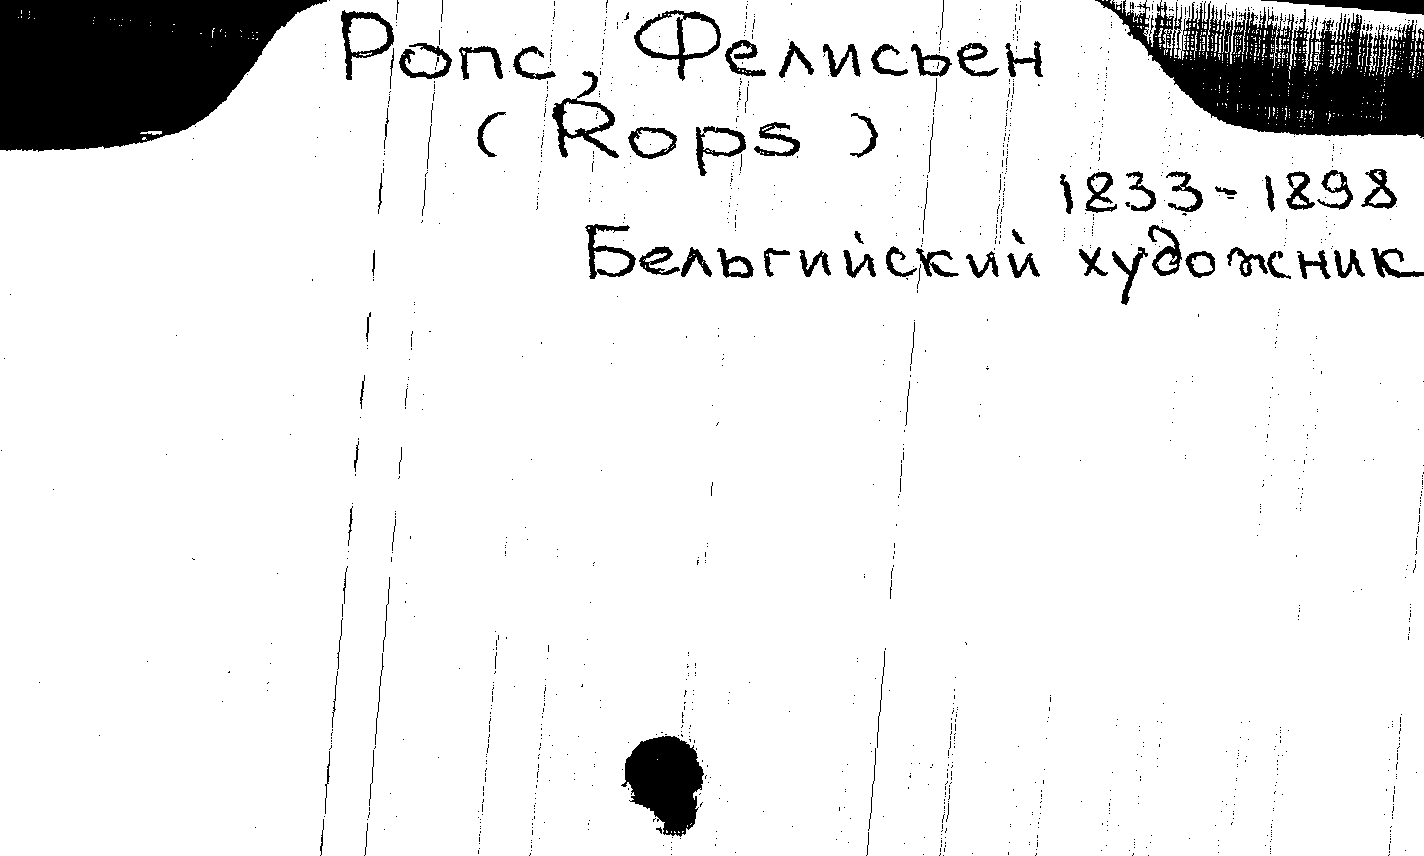 Ропс, Фелисьен
(Rops)
1833-1898
Бельгийский художник